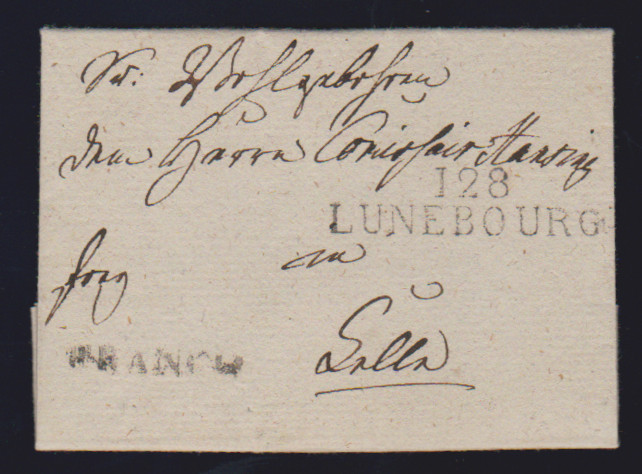 Sr: Wohlgebohren
dem Herrn Comissair Hansing
128
LUNEBOURG
frey
in
Celle
FRANCO